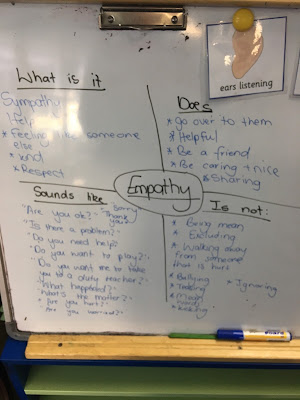 ears listening
What is it
Sympathy
Help
* Feeling like someone
else
* kind
* Respect
Does
* go over to them
* Helpful
* Be a friend
* Be caring + nice
* Sharing
Empathy
Sounds like
"Are you ok?"
"Sorry"
"Thank
you"
"Is there a problem?"
"Do you need help?"
"Do you want to play?"
"Do you want me to take
you to a duty teacher?"
"What happened?"
"What's the matter?"
"Are you hurt?"
"Are you worried?"
Is not:
* Being mean
* Excluding
* Walking away
from someone
that is hurt
* Bullying
* Teasing
* Mean
words
* Ignoring